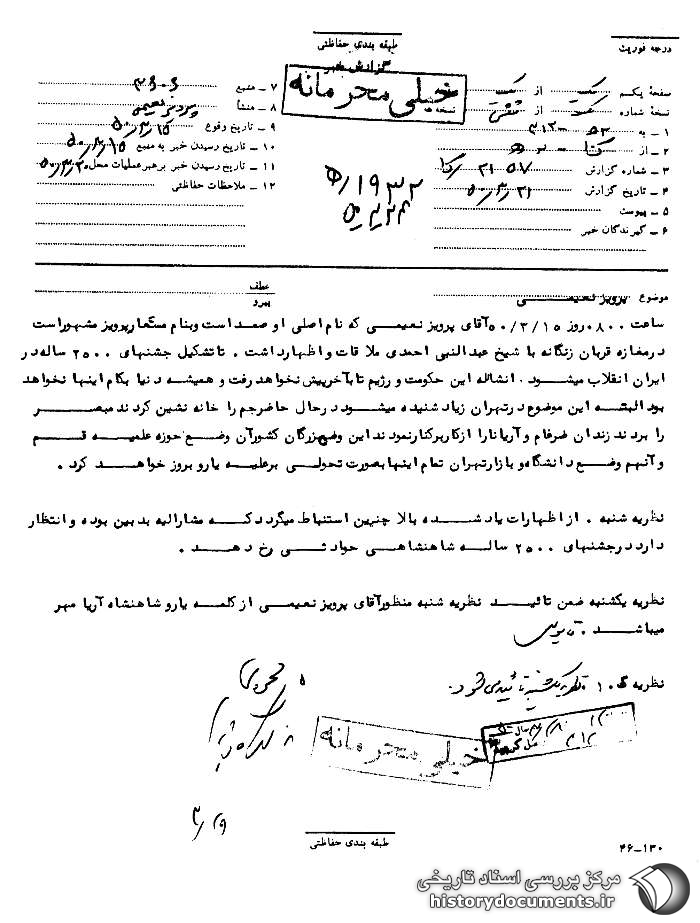 طبقه بندی حفاظتی
درجه فوریت
گزارش خبر
خیلی محرمانه
صفحهٔ یکم یک از یک
نسخهٔ شماره از
۱ – به ۳۱۲
۲ – از
۳ – شماره گزارش ۲۱۵۷
۴ – تاریخ گزارش ۵۰/۳/۲۱
۵ – پیوست
۶ – گیرندگان خبر
۷ – منبع ۳۶۰۶
۸ – منشأ پرویز نعیمی
۹ – تاریخ وقوع ۵۰/۳/۱۵
۱۰ – تاریخ رسیدن خبر به منبع ۵۰/۳/۱۵
۱۱ – تاریخ رسیدن خبر برهبر عملیات محل ۵۰/۳/۲۰
۱۲ – ملاحظات حفاظتی
۵/۱۹۳۲
موضوع پرویز نعیمی
عطف
پیرو
ساعت ۰۸۰۰ روز ۵۰/۳/۱۵ آقای پرویز نعیمی که نام اصلی او صمد است و بنام مستعار پرویز مشهور است
در مغازه قربان زنگانه با شیخ عبدالنبی احمدی ملاقات و اظهار داشت . تا تشکیل جشنهای ۲۵۰۰ ساله در
ایران انقلاب میشود . انشااله این حکومت و رژیم تا بآخر پیش نخواهد رفت و همیشه دنیا بکام اینها نخواهد
بود البته این موضوع در تهران زیاد شنیده میشود در حال حاضر جم را خانه نشین کردند مبصر
را بردند زندان ضرغام و آریانا را از کار برکنار نمودند این وضع بزرگان کشور آن وضع حوزه علمیه قم
و آنهم وضع دانشگاه و بازار تهران تمام اینها بصورت تحولی برعلیه یارو بروز خواهد کرد .
نظریه شنبه . از اظهارات یاد شده بالا چنین استنباط میگردد که مشارالیه بدبین بوده و انتظار
دارد در جشنهای ۲۵۰۰ ساله شاهنشاهی حوادثی رخ دهد .
نظریه یکشنبه ضمن تائید نظریه شنبه منظور آقای پرویز نعیمی از کلمه یارو شاهنشاه آریا مهر
میباشد .
نظریه نظریه یکشنبه تأیید می شود .
خیلی محرمانه
طبقه بندی حفاظتی
۴۶–۱۳۰
مرکز بررسی اسناد تاریخی
historydocuments.ir